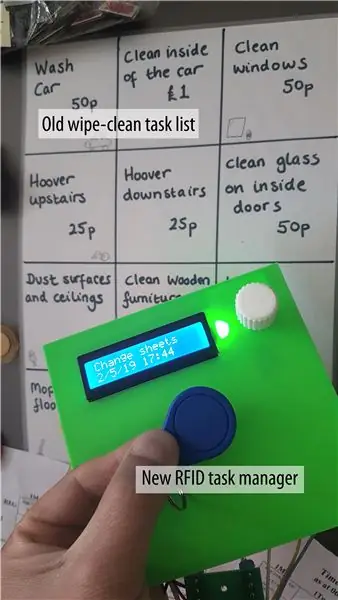 Wash
Car
50p
Clean inside
of the car
£1
Clean
windows
50p
Old wipe-clean task list
Hoover
upstairs
25p
Hoover
downstairs
25p
Clean glass
on inside
doors
50p
Dust surfaces
and ceilings
Clean wooden
furniture
Change sheets
2/5/19 17:44
New RFID task manager